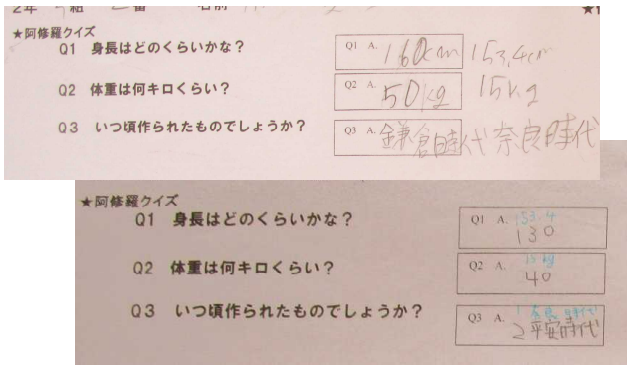 2年 組 番 名前
★阿修羅クイズ
Q1 身長はどのくらいかな？ Q1 A. 160cm 153.4cm
Q2 体重は何キロくらい？ Q2 A. 50kg 15kg
Q3 いつ頃作られたものでしょうか？ Q3 A. 鎌倉時代 奈良時代
★阿修羅クイズ
Q1 身長はどのくらいかな？ Q1 A. 153.4
130
Q2 体重は何キロくらい？ Q2 A. 15kg
40
Q3 いつ頃作られたものでしょうか？ Q3 A. 1 奈良時代
2 平安時代